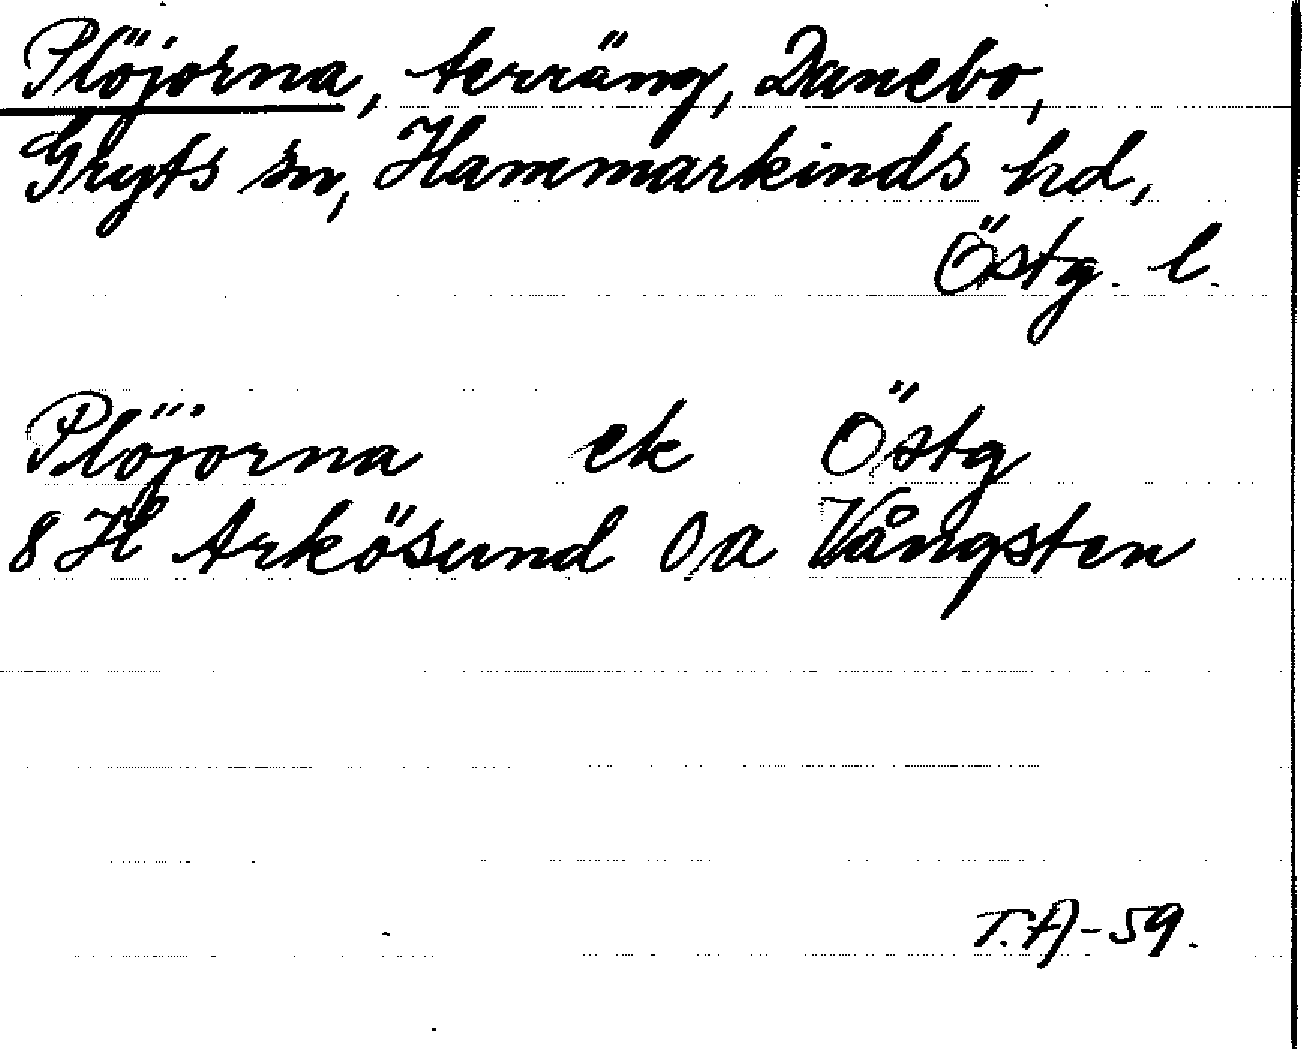 Plöjorna, terräng, Danebo,
Gryts sn, Hammarkinds hd,
Östg. l.
Plöjorna ek Östg
8 H Arkösund 0,a Vångsten
T.A-59.